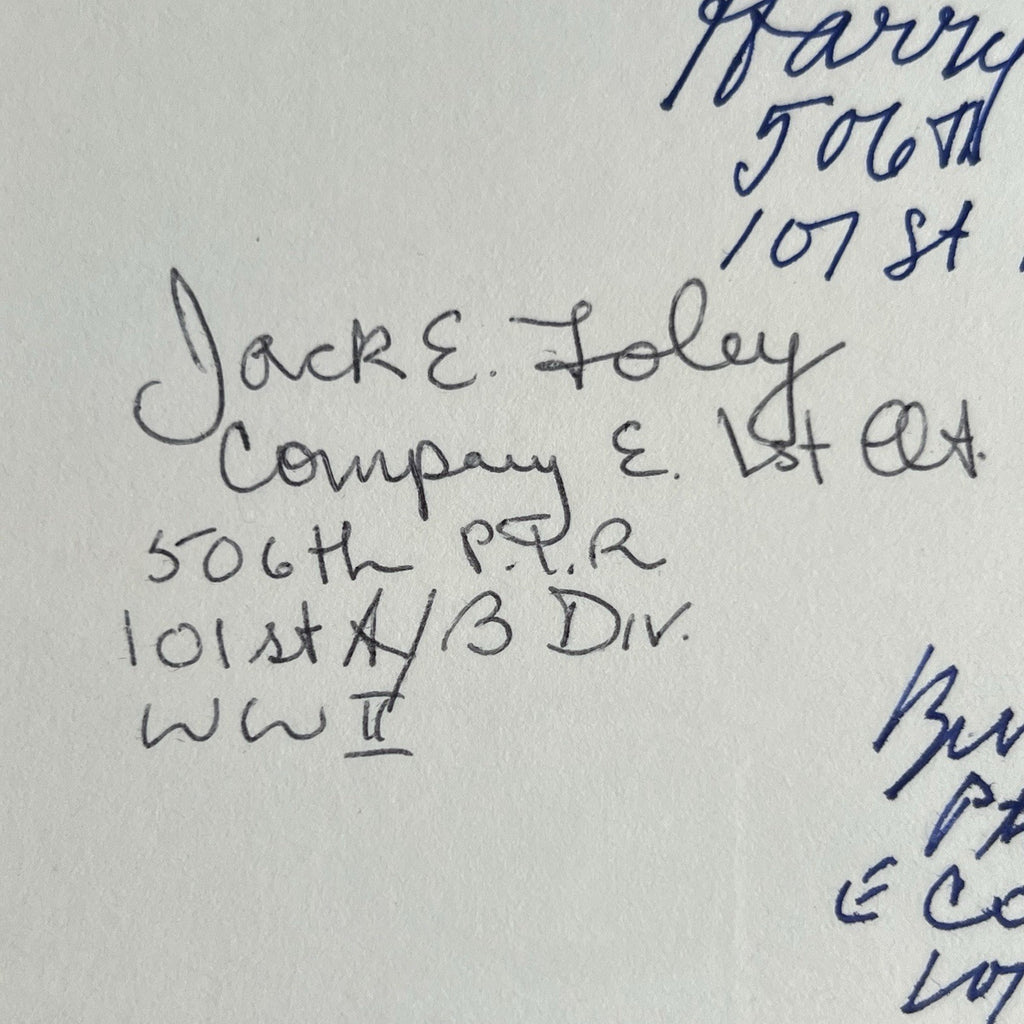 Harry
506TH
101 St
Jack E. Foley
Company E. 1st Plt.
506th P.I.R
101st A/B Div.
WW II
E Co
101